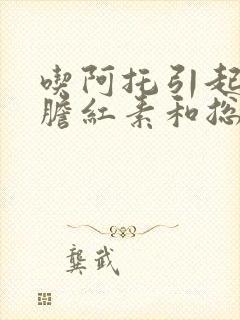 喫阿托引起
膽紅素和总
龔武